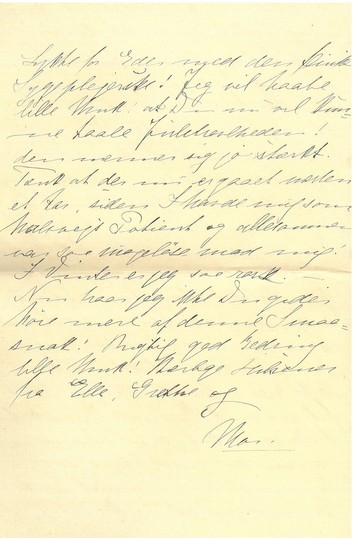 Lykke for Eder med den
Sygeplejerske! Jeg vil haabe
lille Munk: at Du nu vil kun-
ne taale
den nærmer sig jo stærkt.
Tænk at der nu er gaaet næsten
et Aar, siden I havde mig som
halvvejs Patient og allesammen
var søde mod mig!
I Vinter er jeg saa rask.
Nu kan jeg ikke Du gider
høre mere af denne Smaa-
snak! Rigtig god Bedring
lille Munk! Mange Hilsner
fra Elle, Grethe og
Mor.